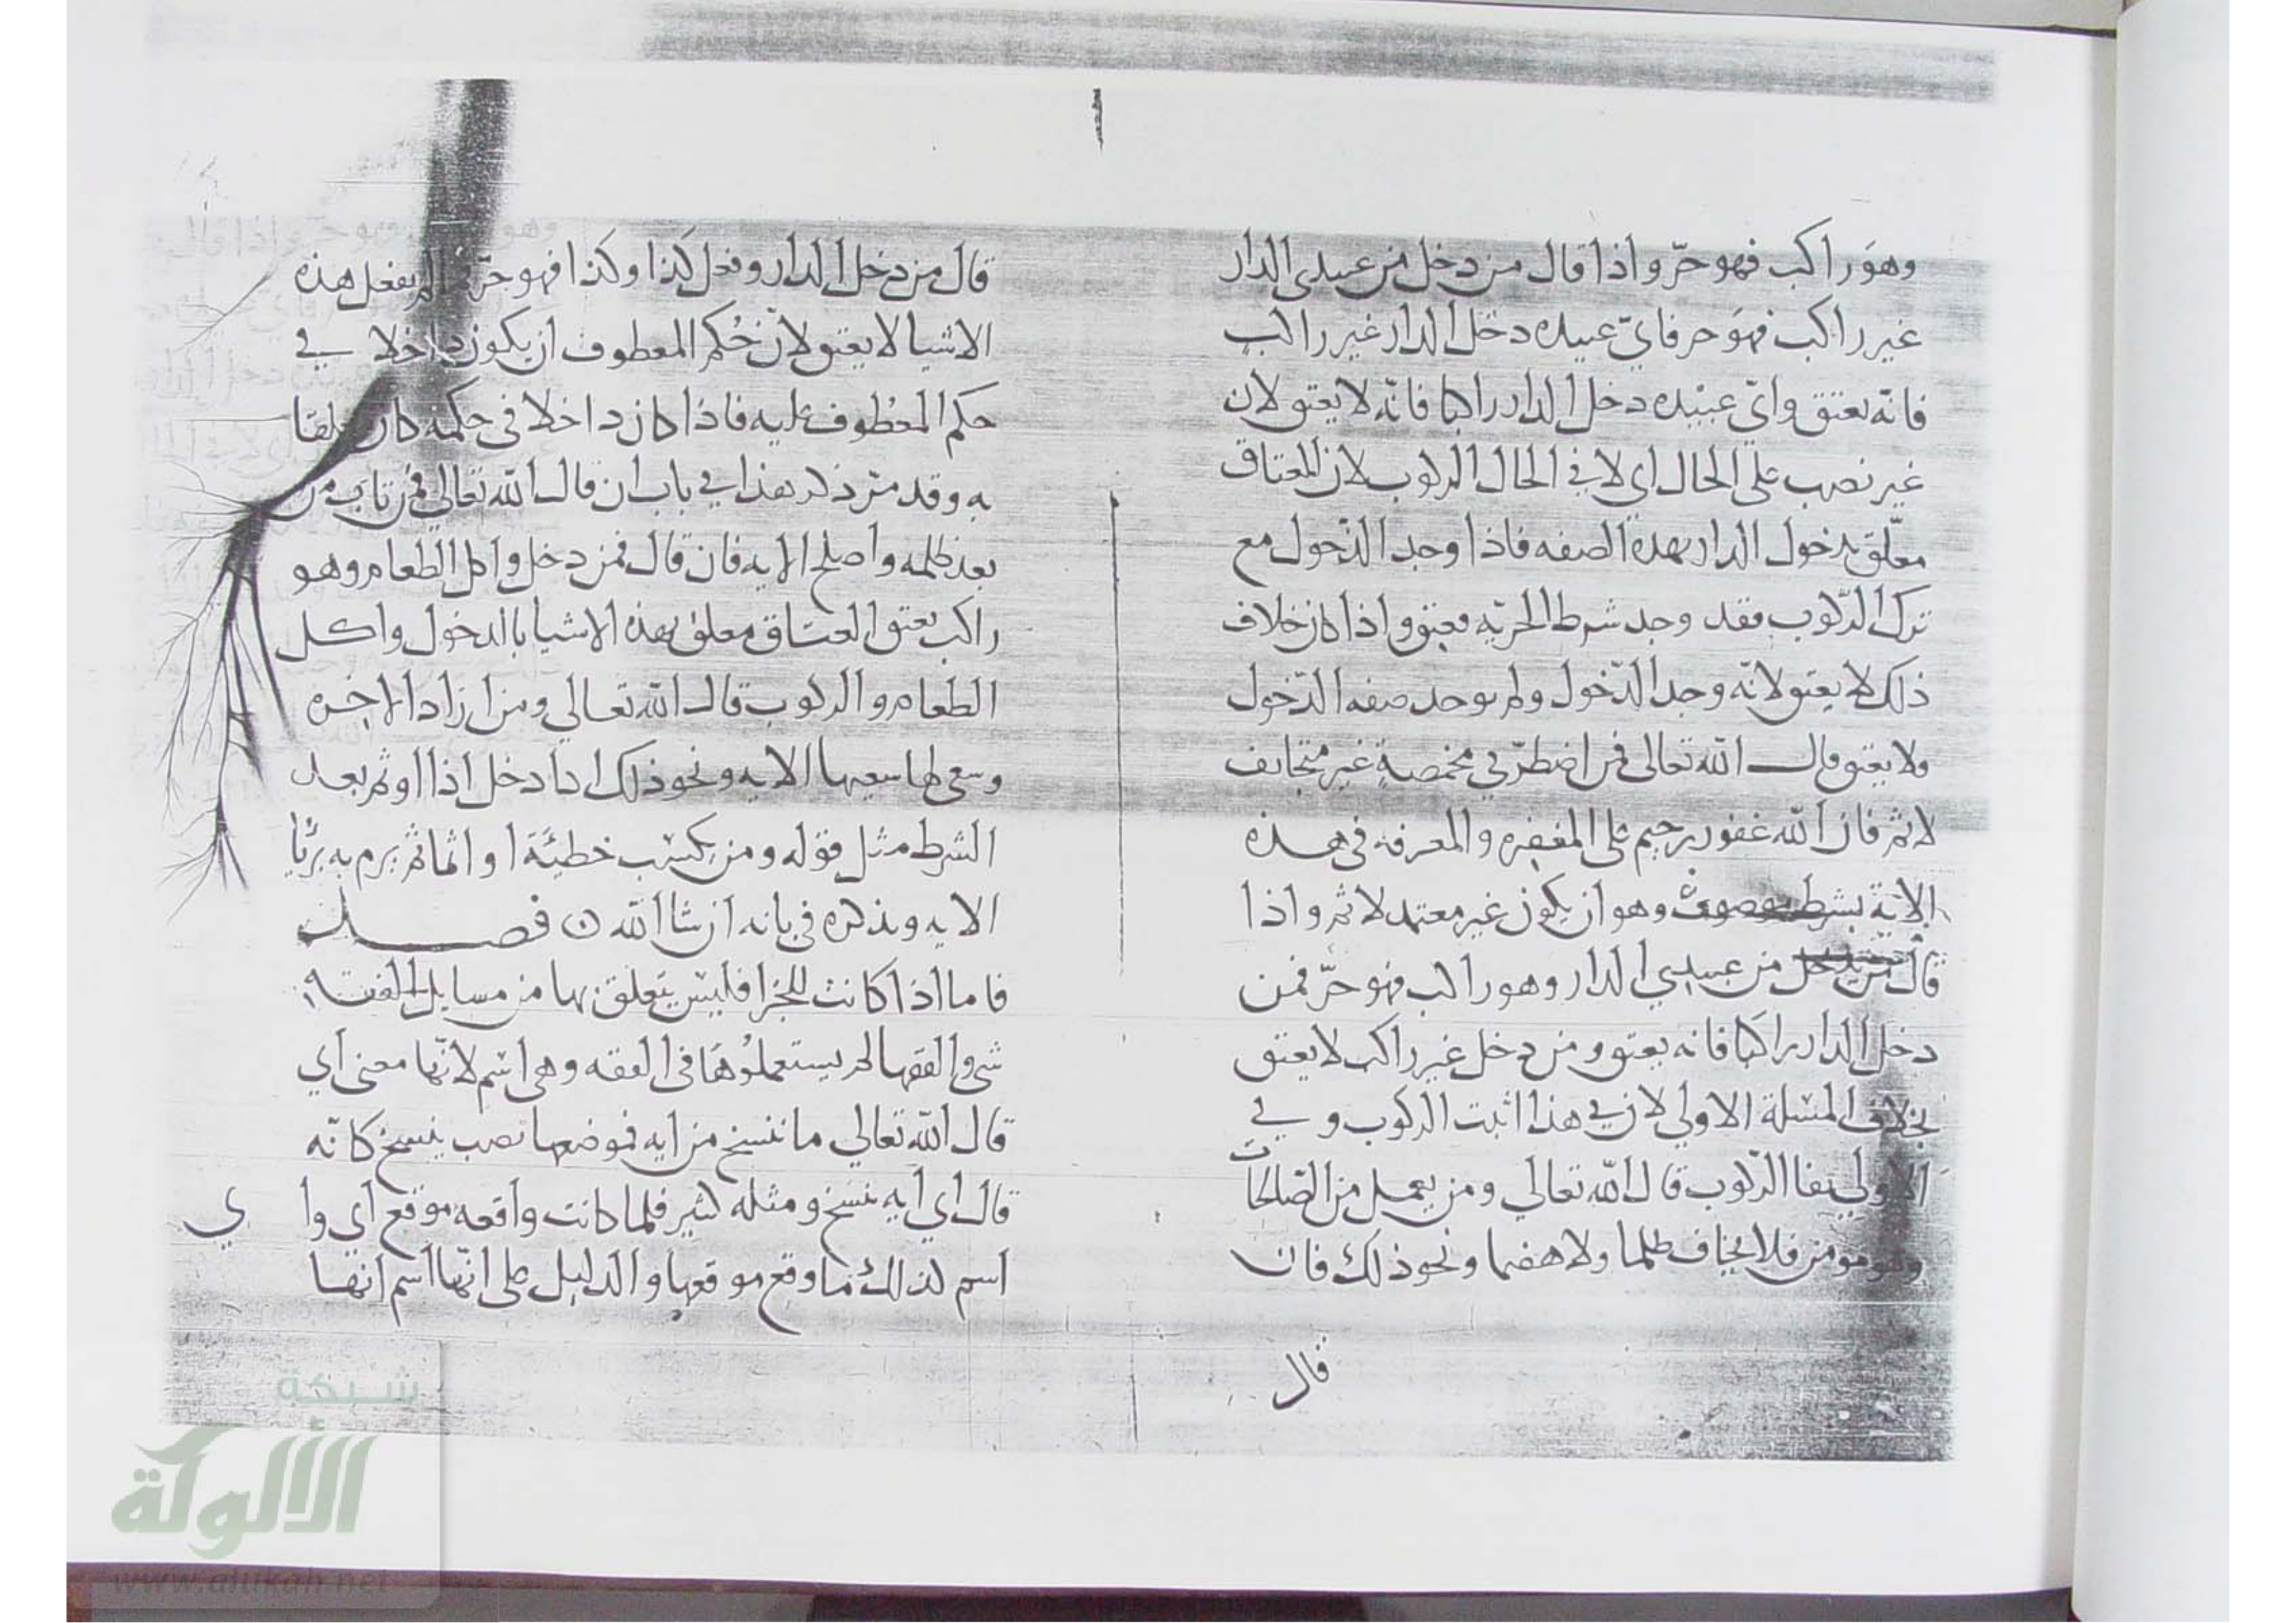 وهو راكب فهو حرّ واذا قال من دخل من عبيدى الدار
غير راكب فهو حر فايّ عبيده دخل الدار غير راكب
فانّه يعتق وايّ عبيده دخل الدار راكبا فانّه لا يعتق لان
غير نصب على الحال اي لا في الحال الركوب لان العتاق
معلّق بدخول الدار بهذه الصفه فاذا وجد الدّخول مع
ترك الرّكوب فقد وجد شرط الحرّيه فيعتق واذا كان خلاف
ذلك لا يعتق لانّه وجد الدّخول ولم يوجد صفه الدّخول
ولا يعتق قال الله تعالى فمن اضطرّ في مخمصةٍ غير متجانف
لاثم فان الله غفور رحيم على المغفره والمعرفه فى هذه
الاية بشرط موصوف وهو ان يكون غير معتمد لاثم واذا
قال من دخل من عبيدي الدار وهو راكب فهو حرّ فمن
دخل الدار راكبا فانه يعتق ومن دخل غير راكب لا يعتق
بخلاف المسئلة الاولي لان في هذا اثبت الركوب وفي
الاولي نفا الرّكوب قال الله تعالي ومن يعمل من الصّالحات
وهو مومن فلا يخاف ظلما ولا هضما ونحو ذلك فان
قال
قال من دخل الدار وفعل كذا وكذا فهو حرّ لم يفعل هذه
الاشيا لا يعتق لانّ حُكم المعطوف ان يكون داخلا في
حكم المعطوف عليه فاذا كان داخلا فى حكمه كان
به وقد مرّ ذكر هذا في باب ان قال الله تعالي فمن تاب من
بعد ظلمه واصلح الايه فان قال فمن دخل واكل الطعام وهو
راكب يعتق العتاق معلق بهذه الاشيا بالدخول واكل
الطعام والركوب قال الله تعالي ومن اراد الاخره
وسعى لها سعيها الايه ونحو ذلك اذا دخل اذا او ثم بعد
الشرط مثل قوله ومن يكسب خطيئة او اثما ثم يرم به بريّا
الايه ونذكره في بابه ان شا الله ن فصل
فاما اذا كانت للجزا فليس يتعلق بها من مسايل الفقه
شي والفقها لم يستعملوُها فى الفقه وهى اسم لانّها معنى اي
قال الله تعالي ما ننسخ من ايه فموضعها نصب بننسخ كانّه
قال اي ايه ننسخ ومثله كثير فلما كانت واقعه موقع اي وا
ي
اسم لذلك ما وقع موقعها والدليل على انّها اسم انها
شبكة
الألوكة
www.alukah.net